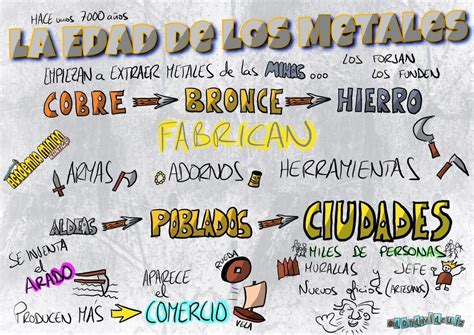 HACE unos 7000 años
LA EDAD DE LOS METALES
EMPIEZAN a EXTRAER METALES de las MINAS ...
LOS FORJAN
LOS FUNDEN
COBRE BRONCE HIERRO
FABRICAN
academia minigo
ARMAS ADORNOS HERRAMIENTAS
ALDEAS POBLADOS CIUDADES
MILES DE PERSONAS
SE INVENTA
el
ARADO
RUEDA
MURALLAS y JEFE
APARECE
el
NUEVOS oficios (ARTESANOS)
PRODUCEN MÁS COMERCIO
VELA